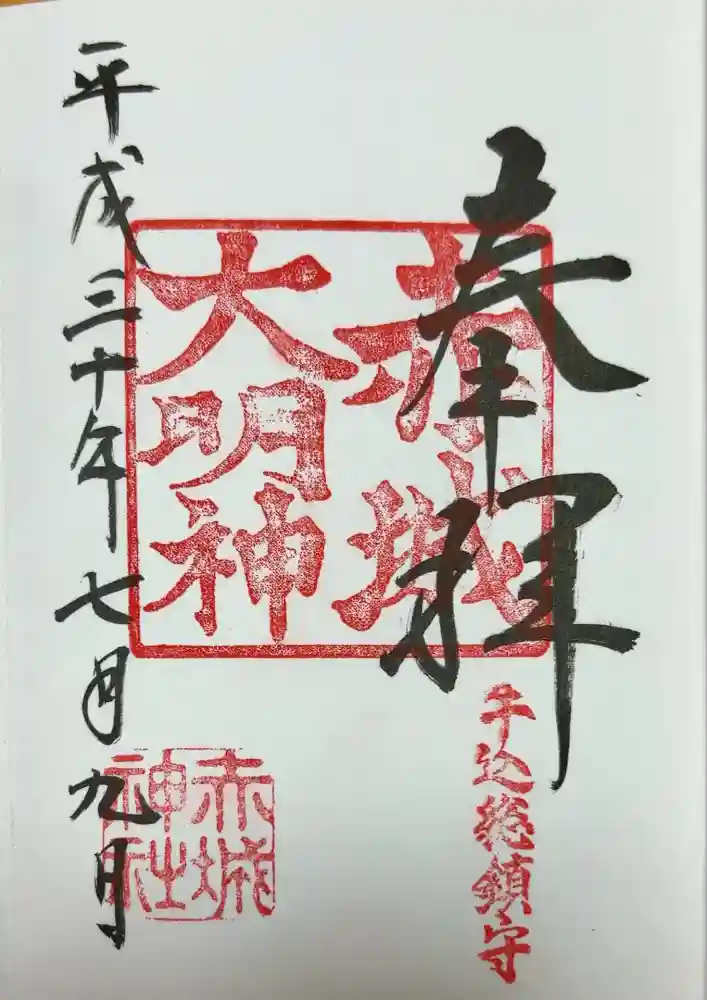 奉拝
赤城
大明神
牛込総鎮守
平成三十年七月九日
赤城
神社